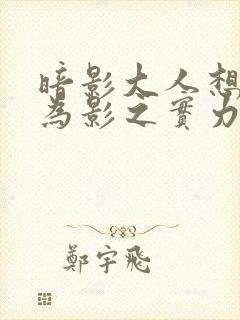 暗影大人想
為影之實力
鄭宇飛